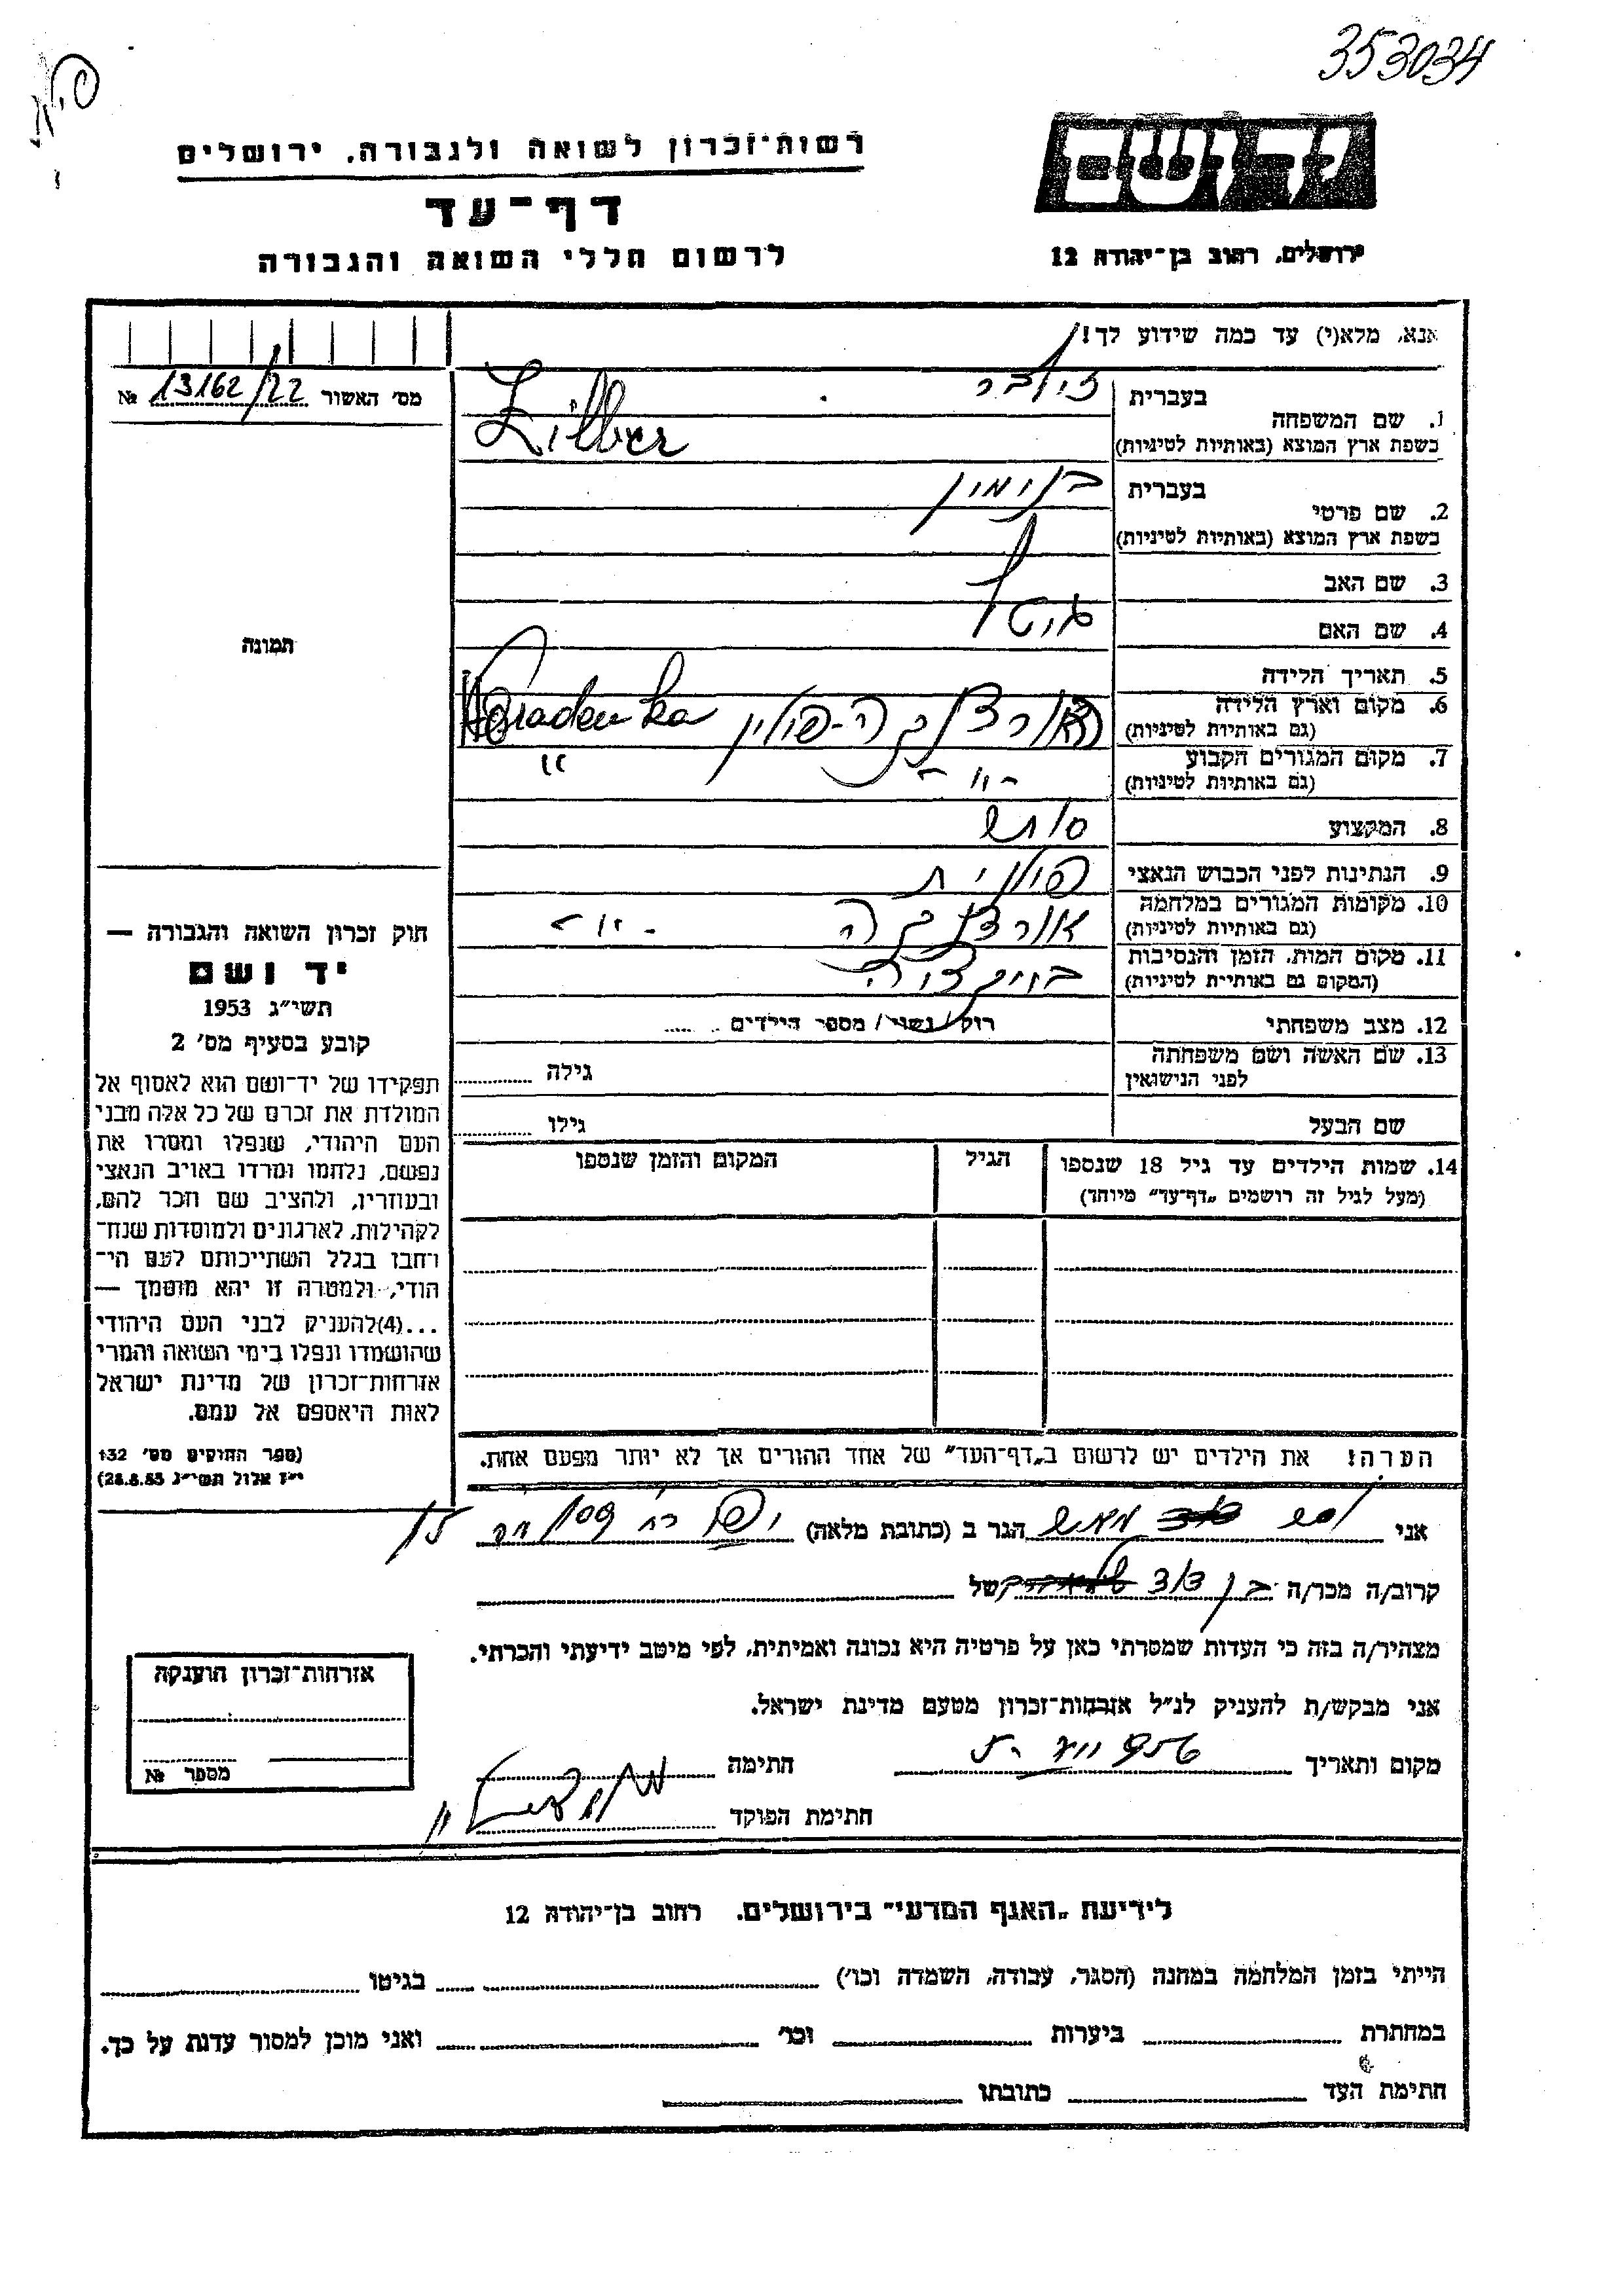 353034
רשות־זכרון לשואה ולגבורה, ירושלים
יד ושם
דף־עד
לרשום חללי השואה והגבורה
ירושלים, רחוב בן־יהודה 12
אנא, מלא(י) עד כמה שידוע לך!
מס׳ האשור 13162/22 №
בעברית זילבר
1. שם המשפחה
בשפת ארץ המוצא (באותיות לטיניות) Zilber
בעברית בנימין
2. שם פרטי
בשפת ארץ המוצא (באותיות לטיניות)
3. שם האב
4. שם האם
תמונה
5. תאריך הלידה
6. מקום וארץ הלידה
(גם באותיות לטיניות) הורדנקה-פולין Horadenka
7. מקום המגורים הקבוע
(גם באותיות לטיניות) -"- "
8. המקצוע סוחר
9. הנתינות לפני הכבוש הנאצי פולנית
10. מקומות המגורים במלחמה
(גם באותיות לטיניות) הורדנקה -"-
11. מקום המות, הזמן והנסיבות
(המקום גם באותיות לטיניות)
12. מצב משפחתי רוק / נשוי / מספר הילדים
13. שם האשה ושם משפחתה
לפני הנישואין גילה
שם הבעל גילו
14. שמות הילדים עד גיל 18 שנספו הגיל המקום והזמן שנספו
(מעל לגיל זה רושמים „דף־עד״ מיוחד)
חוק זכרון השואה והגבורה —
יד ושם
תשי״ג 1953
קובע בסעיף מס׳ 2
תפקידו של יד־ושם הוא לאסוף אל
המולדת את זכרם של כל אלה מבני
העם היהודי, שנפלו ומסרו את
נפשם, נלחמו ומרדו באויב הנאצי
ובעוזריו, ולהציב שם וזכר להם,
לקהילות, לארגונים ולמוסדות שנח־
רחבו בגלל השתייכותם לעם הי־
הודי, ולמטרה זו יהא מוסמך —
...(4)להעניק לבני העם היהודי
שהושמדו ונפלו בימי השואה והמרי
אזרחות־זכרון של מדינת ישראל
לאות היאספם אל עמם.
(ספר החוקים מס׳ 132
י״ז אלול תשי״ג 28.8.53)
הערה! את הילדים יש לרשום ב„דף־העד״ של אחד ההורים אך לא יותר מפעם אחת.
אני הגר ב (כתובת מלאה)
קרוב/ה מכר/ה בן דוד של
מצהיר/ה בזה כי העדות שמסרתי כאן על פרטיה היא נכונה ואמיתית, לפי מיטב ידיעתי והכרתי.
אני מבקש/ת להעניק לנ״ל אזרחות־זכרון מטעם מדינת ישראל.
מקום ותאריך חתימה
חתימת הפוקד
אזרחות־זכרון הוענקה
מספר №
לידיעת „האגף המדעי״ בירושלים. רחוב בן־יהודה 12
הייתי בזמן המלחמה במחנה (הסגר, עבודה, השמדה וכו׳) בגיטו
במחתרת ביערות וכו׳ ואני מוכן למסור עדות על כך.
חתימת העד כתובתו